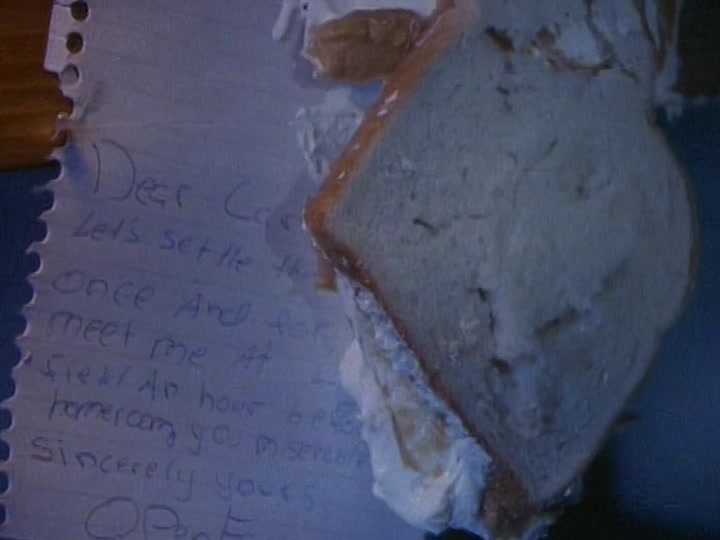 Dear
Let's settle
once And for
meet me At
field An hour before
homeroom you miserable
sincerely yours